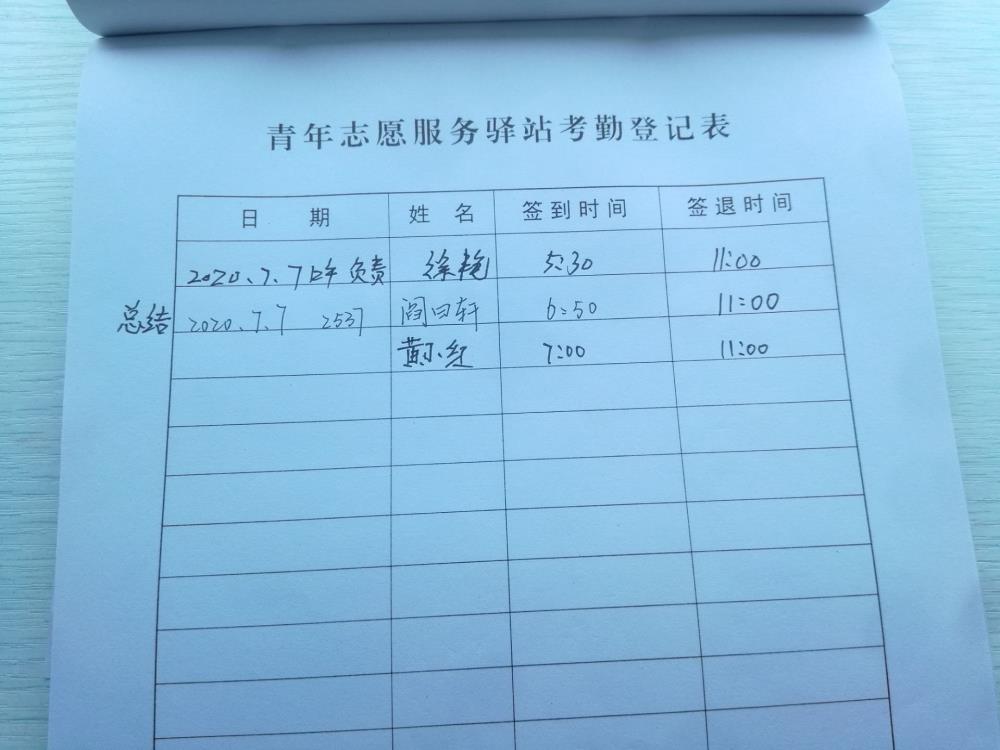 青年志愿服务驿站考勤登记表
日 期 姓 名 签到时间 签退时间
2020.7.7 负责 徐艳 5:30 11:00
总结 2020.7.7 2537 阎曰轩 6:50 11:00
黄小红 7:00 11:00